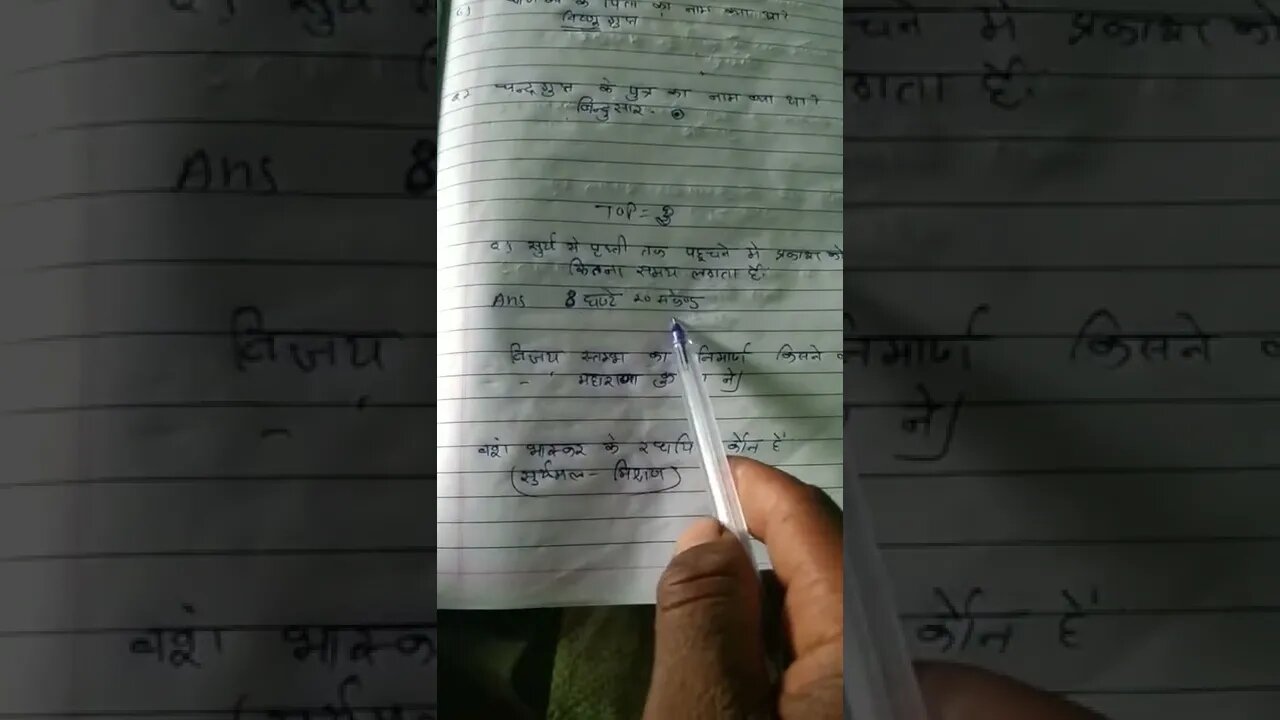 के पिता का नाम क्या था?
विष्णु गुप्त
चन्द्रगुप्त के पुत्र का नाम क्या था?
बिन्दुसार
TOP = 3
सुर्य से पृथ्वी तक पहूचने मे प्रकाश को
कितना समय लगता हैं
Ans 8 घण्टे 20 सकेण्ड
विजय स्तम्भ का निमार्ण किसने
महाराणा ने
वशं भास्कर के कौन हैं
(सुर्यमल -